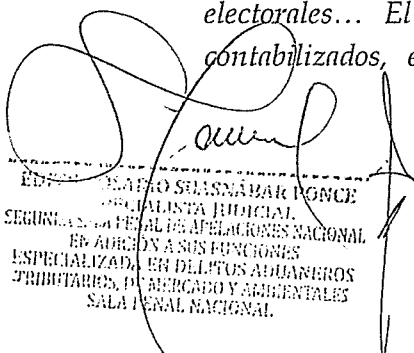 electorales... El
contabilizados, e
SUASNÁBAR PONCE
ESPECIALISTA JUDICIAL
SEGUNDA SALA PENAL DE APELACIONES NACIONAL
EN ADICIÓN A SUS FUNCIONES
ESPECIALIZADA EN DELITOS ADUANEROS
TRIBUTARIOS, DE MERCADO Y AMBIENTALES
SALA PENAL NACIONAL